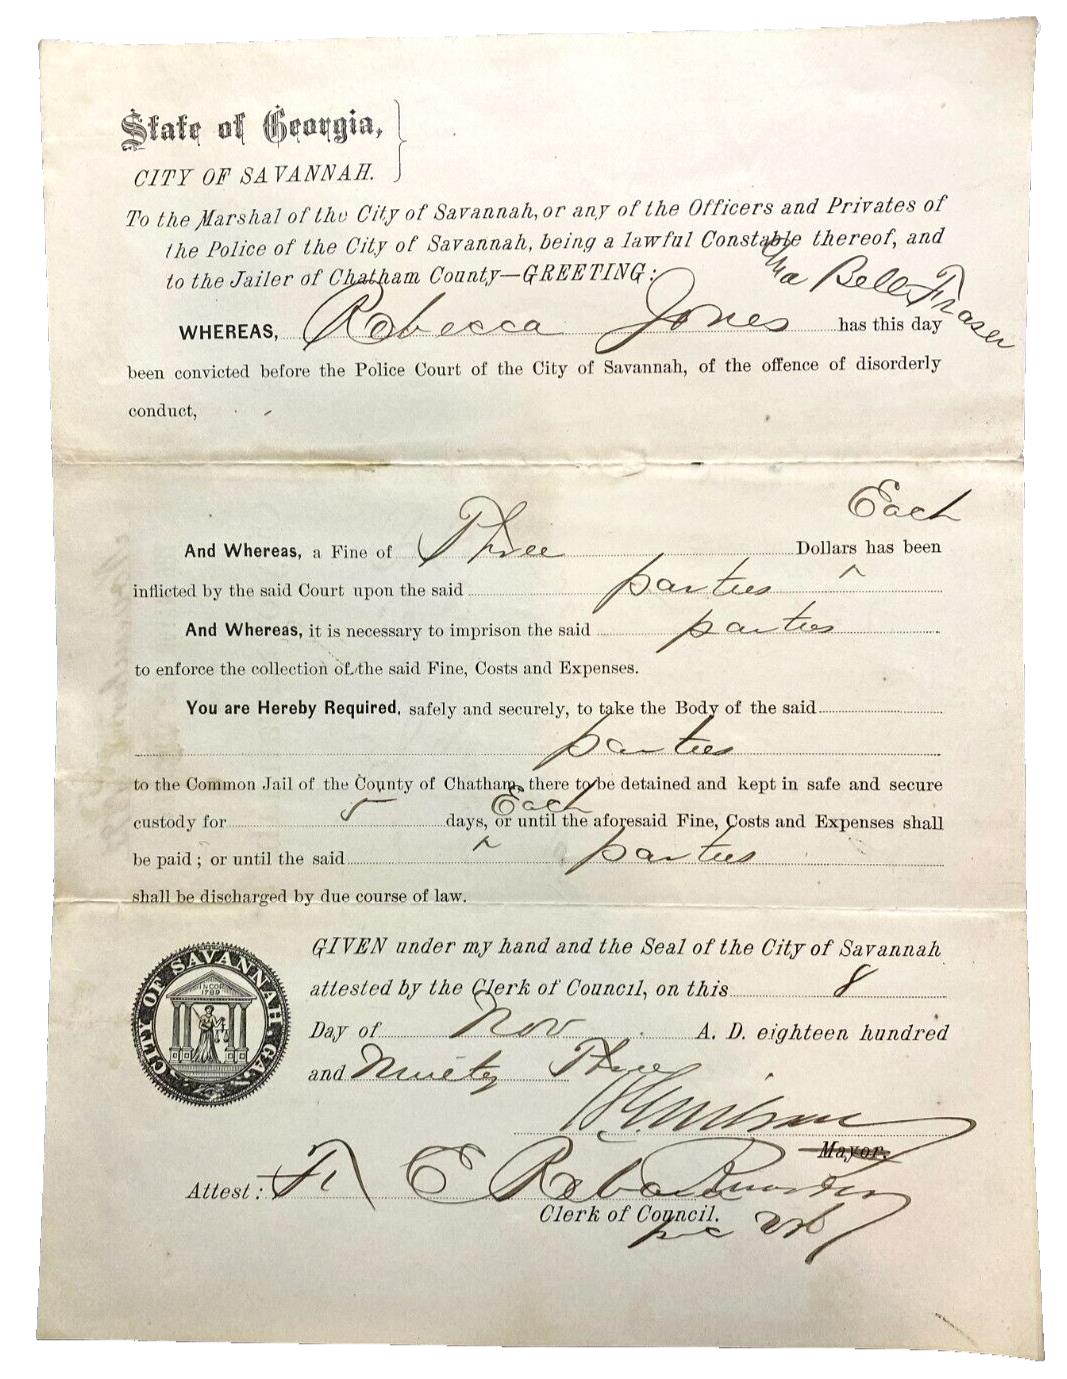 State of Georgia,
CITY OF SAVANNAH.
To the Marshal of the City of Savannah, or any of the Officers and Privates of
the Police of the City of Savannah, being a lawful Constable thereof, and
to the Jailer of Chatham County—GREETING:
Bell Fraser
WHEREAS, Rebecca Jones has this day
been convicted before the Police Court of the City of Savannah, of the offence of disorderly
conduct,
Each
And Whereas, a Fine of Three Dollars ^ has been
inflicted by the said Court upon the said parties
And Whereas, it is necessary to imprison the said parties
to enforce the collection of the said Fine, Costs and Expenses.
You are Hereby Required, safely and securely, to take the Body of the said
parties
to the Common Jail of the County of Chatham, there to be detained and kept in safe and secure
Each
custody for 5 days, ^ or until the aforesaid Fine, Costs and Expenses shall
be paid; or until the said parties
shall be discharged by due course of law.
CITY OF SAVANNAH, GA.
INCOR
1789
GIVEN under my hand and the Seal of the City of Savannah
attested by the Clerk of Council, on this 8
Day of Nov A. D. eighteen hundred
and Ninety Three
Mayor.
Attest: F E Rebarer
Clerk of Council.